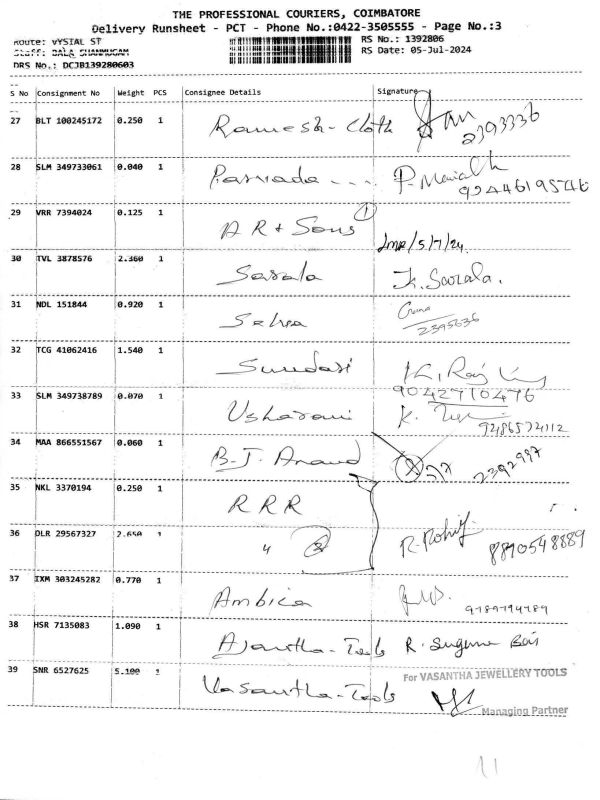 THE PROFESSIONAL COURIERS, COIMBATORE
Delivery Runsheet - PCT - Phone No.:0422-3505555 - Page No.:3
Route: VYSIAL ST
RS No.: 1392806
Staff: BALA SHANMUGAM
RS Date: 05-Jul-2024
DRS No.: DCJB139280603
S No Consignment No Weight PCS Consignee Details Signature
27 BLT 100245172 0.250 1 Ramesh-Cloth
2393336
28 SLM 349733061 0.040 1
29 VRR 7394024 0.125 1 A R & Sons 1
5/7/24
30 TVL 3878576 2.360 1 Sarala K. Saorala.
31 NDL 151844 0.920 1 Selva
2395636
32 TCG 41062416 1.540 1 Sundari
9042710476
33 SLM 349738789 0.070 1 Usharani K.
9486574112
34 MAA 866551567 0.060 1 B.J. Anand 2392997
35 NKL 3370194 0.250 1 R R R
36 DLR 29567327 2.650 1 " 2 R. Rohit 8890548889
37 IXM 303245282 0.770 1 Ambica
9789794789
38 HSR 7135083 1.090 1 Ajantha-Tools R. Suguna Bai
39 SNR 6527625 5.100 1 Vasantha-Tools
For VASANTHA JEWELLERY TOOLS
Managing Partner
11